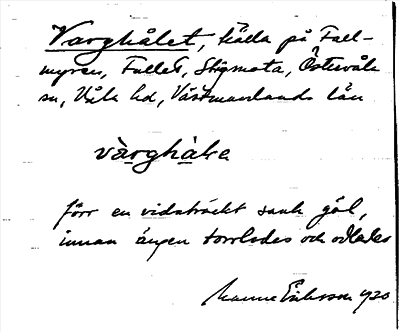 Varghålet, källa på Fall-
myren, Fallet, Stigmota, Östervåla
sn, Våla hd, Västmanlands län
vàrghålea
förr en vidsträckt sank göl,
innan ängen torrlades och odlades
Manne Eriksson 1920